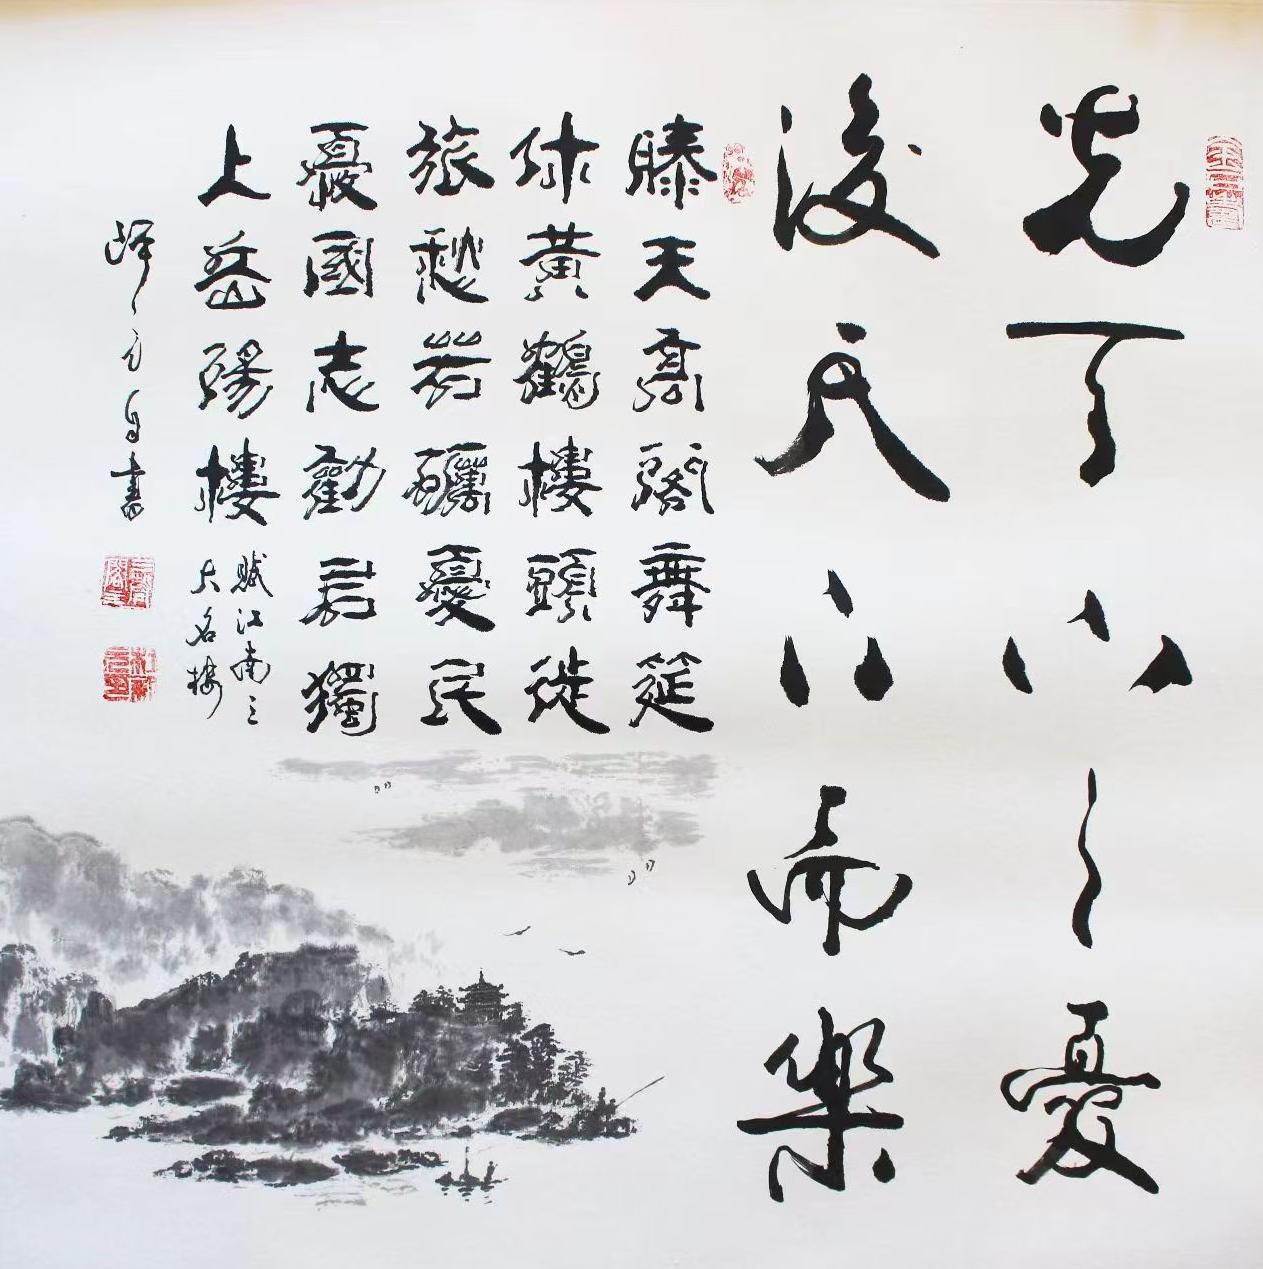 先天下之憂
後天下而樂
滕王高閣舞筵
休黃鶴樓頭徒
旅愁若礪憂民
憂國志勸君獨
上岳陽樓
賦江南三
大名樓
自書